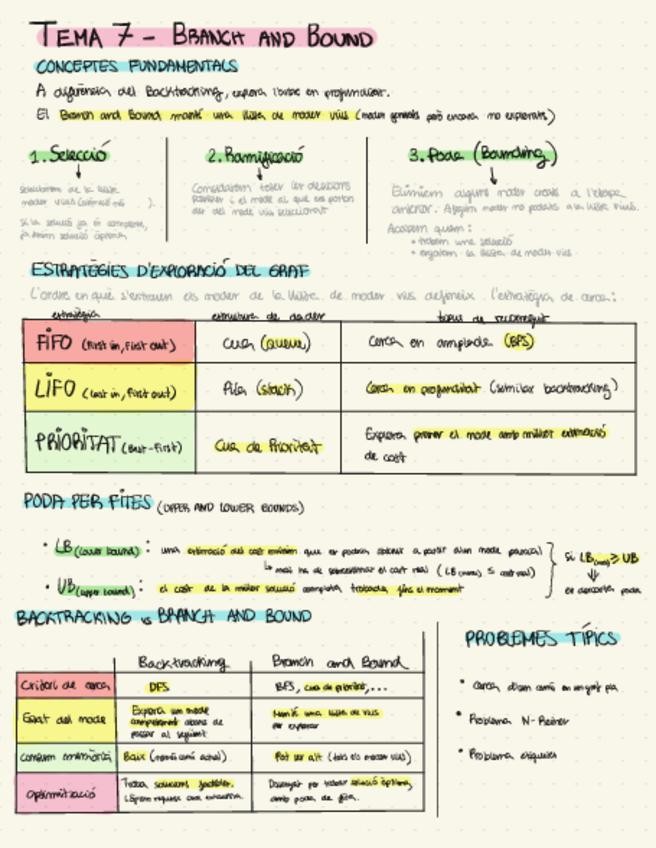 TEMA 7 - BRANCH AND BOUND
CONCEPTES FUNDAMENTALS
A diferència del Backtracking, explora l'arbre en profunditat.
El Branch and Bound manté una llista de nodes vius (nodes generats però encara no explorats)
1. Selecció
2. Ramificació
3. Poda (Bounding)
Seleccionem de la llista
nodes vius
si la solució ja és completa,
ja tenim solució òptima
Considerem totes les decisions
possibles i el node al que ens porten
des del node viu seleccionat
Eliminem alguns nodes creats a l'etapa
anterior. Afegim nodes no podats a la llista vius.
Acabem quan:
• trobem una solució
• esgotem la llista de nodes vius
ESTRATÈGIES D'EXPLORACIÓ DEL GRAF
L'ordre en què s'extreuen els nodes de la llista de nodes vius defineix l'estratègia de cerca:
estratègia
estructura de dades
tipus de recorregut
FIFO (First in, First out)
Cua (queue)
Cerca en amplada (BFS)
LIFO (Last in, First out)
Pila (stack)
Cerca en profunditat (similar backtracking)
PRIORITAT (Best-First)
Cua de Prioritat
Explora primer el node amb millor estimació
de cost
PODA PER FITES (UPPER AND LOWER BOUNDS)
• LB (lower bound): una estimació del cost mínim que es podria obtenir a partir d'un node parcial
↳ mai ha de sobreestimar el cost real (LB ≤ cost real)
• UB (upper bound): el cost de la millor solució completa trobada fins el moment
si LB ≥ UB
⇓
es descarta, poda
BACKTRACKING vs BRANCH AND BOUND
Backtracking
Branch and Bound
Criteri de cerca
DFS
BFS, cua de prioritat,...
Estat del node
Explora un node
completament abans de
passar al següent
Manté una llista de vius
per explorar
consum memòria
Baix (només camí actual)
Pot ser alt (tots els nodes vius)
Optimització
Troba solucions factibles.
Dissenyat per trobar solució òptima,
amb poda de fites.
PROBLEMES TÍPICS
• Cerca
• Problema N-Reines
• Problema etiquetes